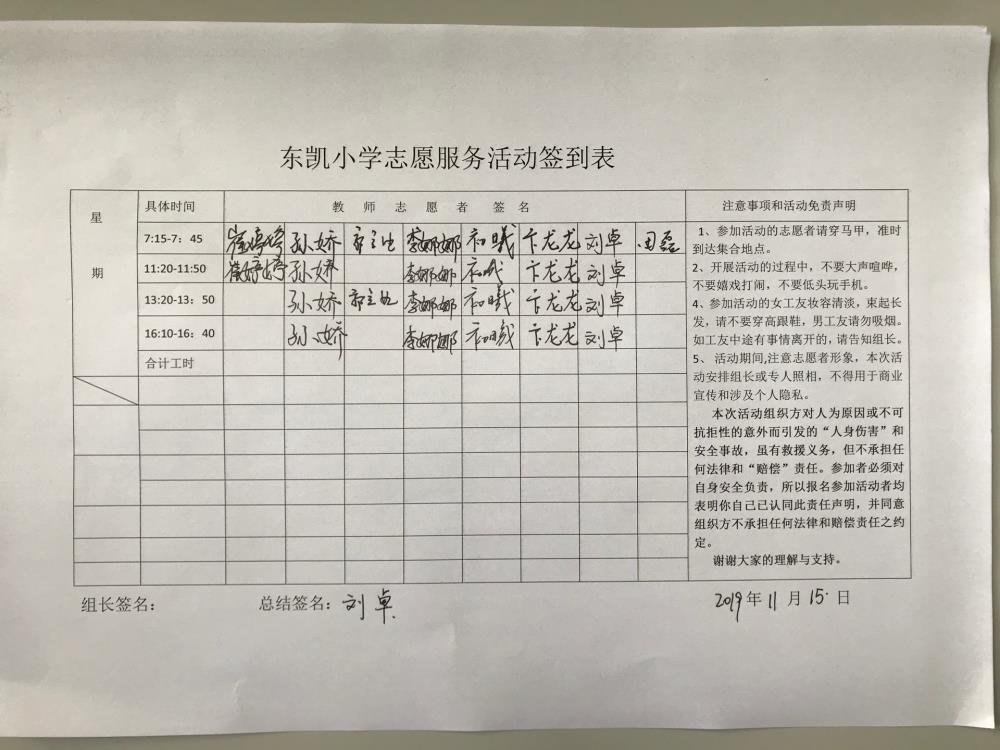 东凯小学志愿服务活动签到表
星期
具体时间 教师志愿者签名 注意事项和活动免责声明
7:15-7：45 崔婷婷 孙娇 李娜娜 初曦 卞龙龙 刘卓 田磊
11:20-11:50 崔婷婷 孙娇 李娜娜 初曦 卞龙龙 刘卓
13:20-13：50 孙娇 李娜娜 初曦 卞龙龙 刘卓
16:10-16：40 孙娇 李娜娜 初曦 卞龙龙 刘卓
合计工时
1、参加活动的志愿者请穿马甲，准时
到达集合地点。
2、开展活动的过程中，不要大声喧哗，
不要嬉戏打闹，不要低头玩手机。
4、参加活动的女工友妆容清淡，束起长
发，请不要穿高跟鞋，男工友请勿吸烟。
如工友中途有事情离开的，请告知组长。
5、 活动期间,注意志愿者形象，本次活
动安排组长或专人照相，不得用于商业
宣传和涉及个人隐私。
本次活动组织方对人为原因或不可
抗拒性的意外而引发的“人身伤害”和
安全事故，虽有救援义务，但不承担任
何法律和“赔偿”责任。参加者必须对
自身安全负责，所以报名参加活动者均
表明你自己已认同此责任声明，并同意
组织方不承担任何法律和赔偿责任之约
定。
谢谢大家的理解与支持。
组长签名： 总结签名：刘卓 2019年11月15日